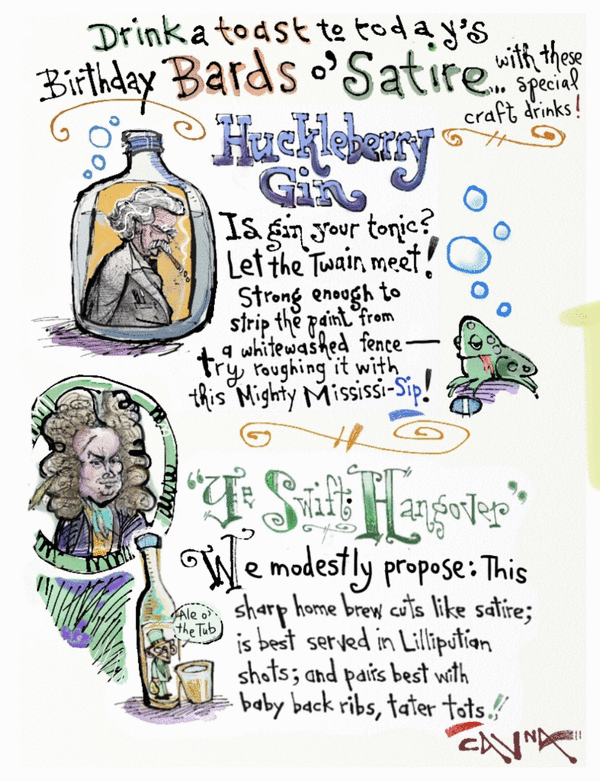 Drink a toast to today's
Birthday Bards o' Satire... with these
special
craft drinks!
Huckleberry
Gin
Is gin your tonic?
Let the Twain meet!
Strong enough to
strip the paint from
a whitewashed fence—
try roughing it with
this Mighty Mississi-Sip!
"Ye Swift Hangover"
We modestly propose: This
sharp home brew cuts like satire;
is best served in Lilliputian
shots; and pairs best with
baby back ribs, tater tots!!
Ale o'
the Tub
CAVNA